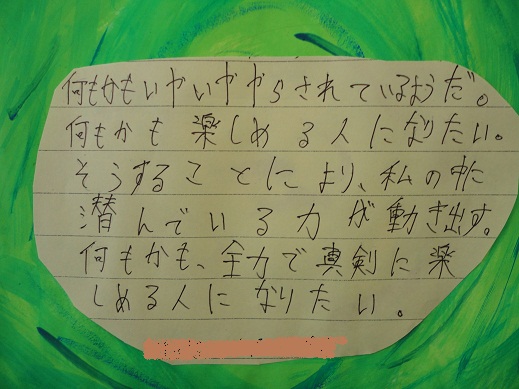 何もかもいやいややらされているようだ。
何もかも楽しめる人になりたい。
そうすることにより、私の中に
潜んでいる力が動き出す。
何もかも、全力で真剣に楽
しめる人になりたい。